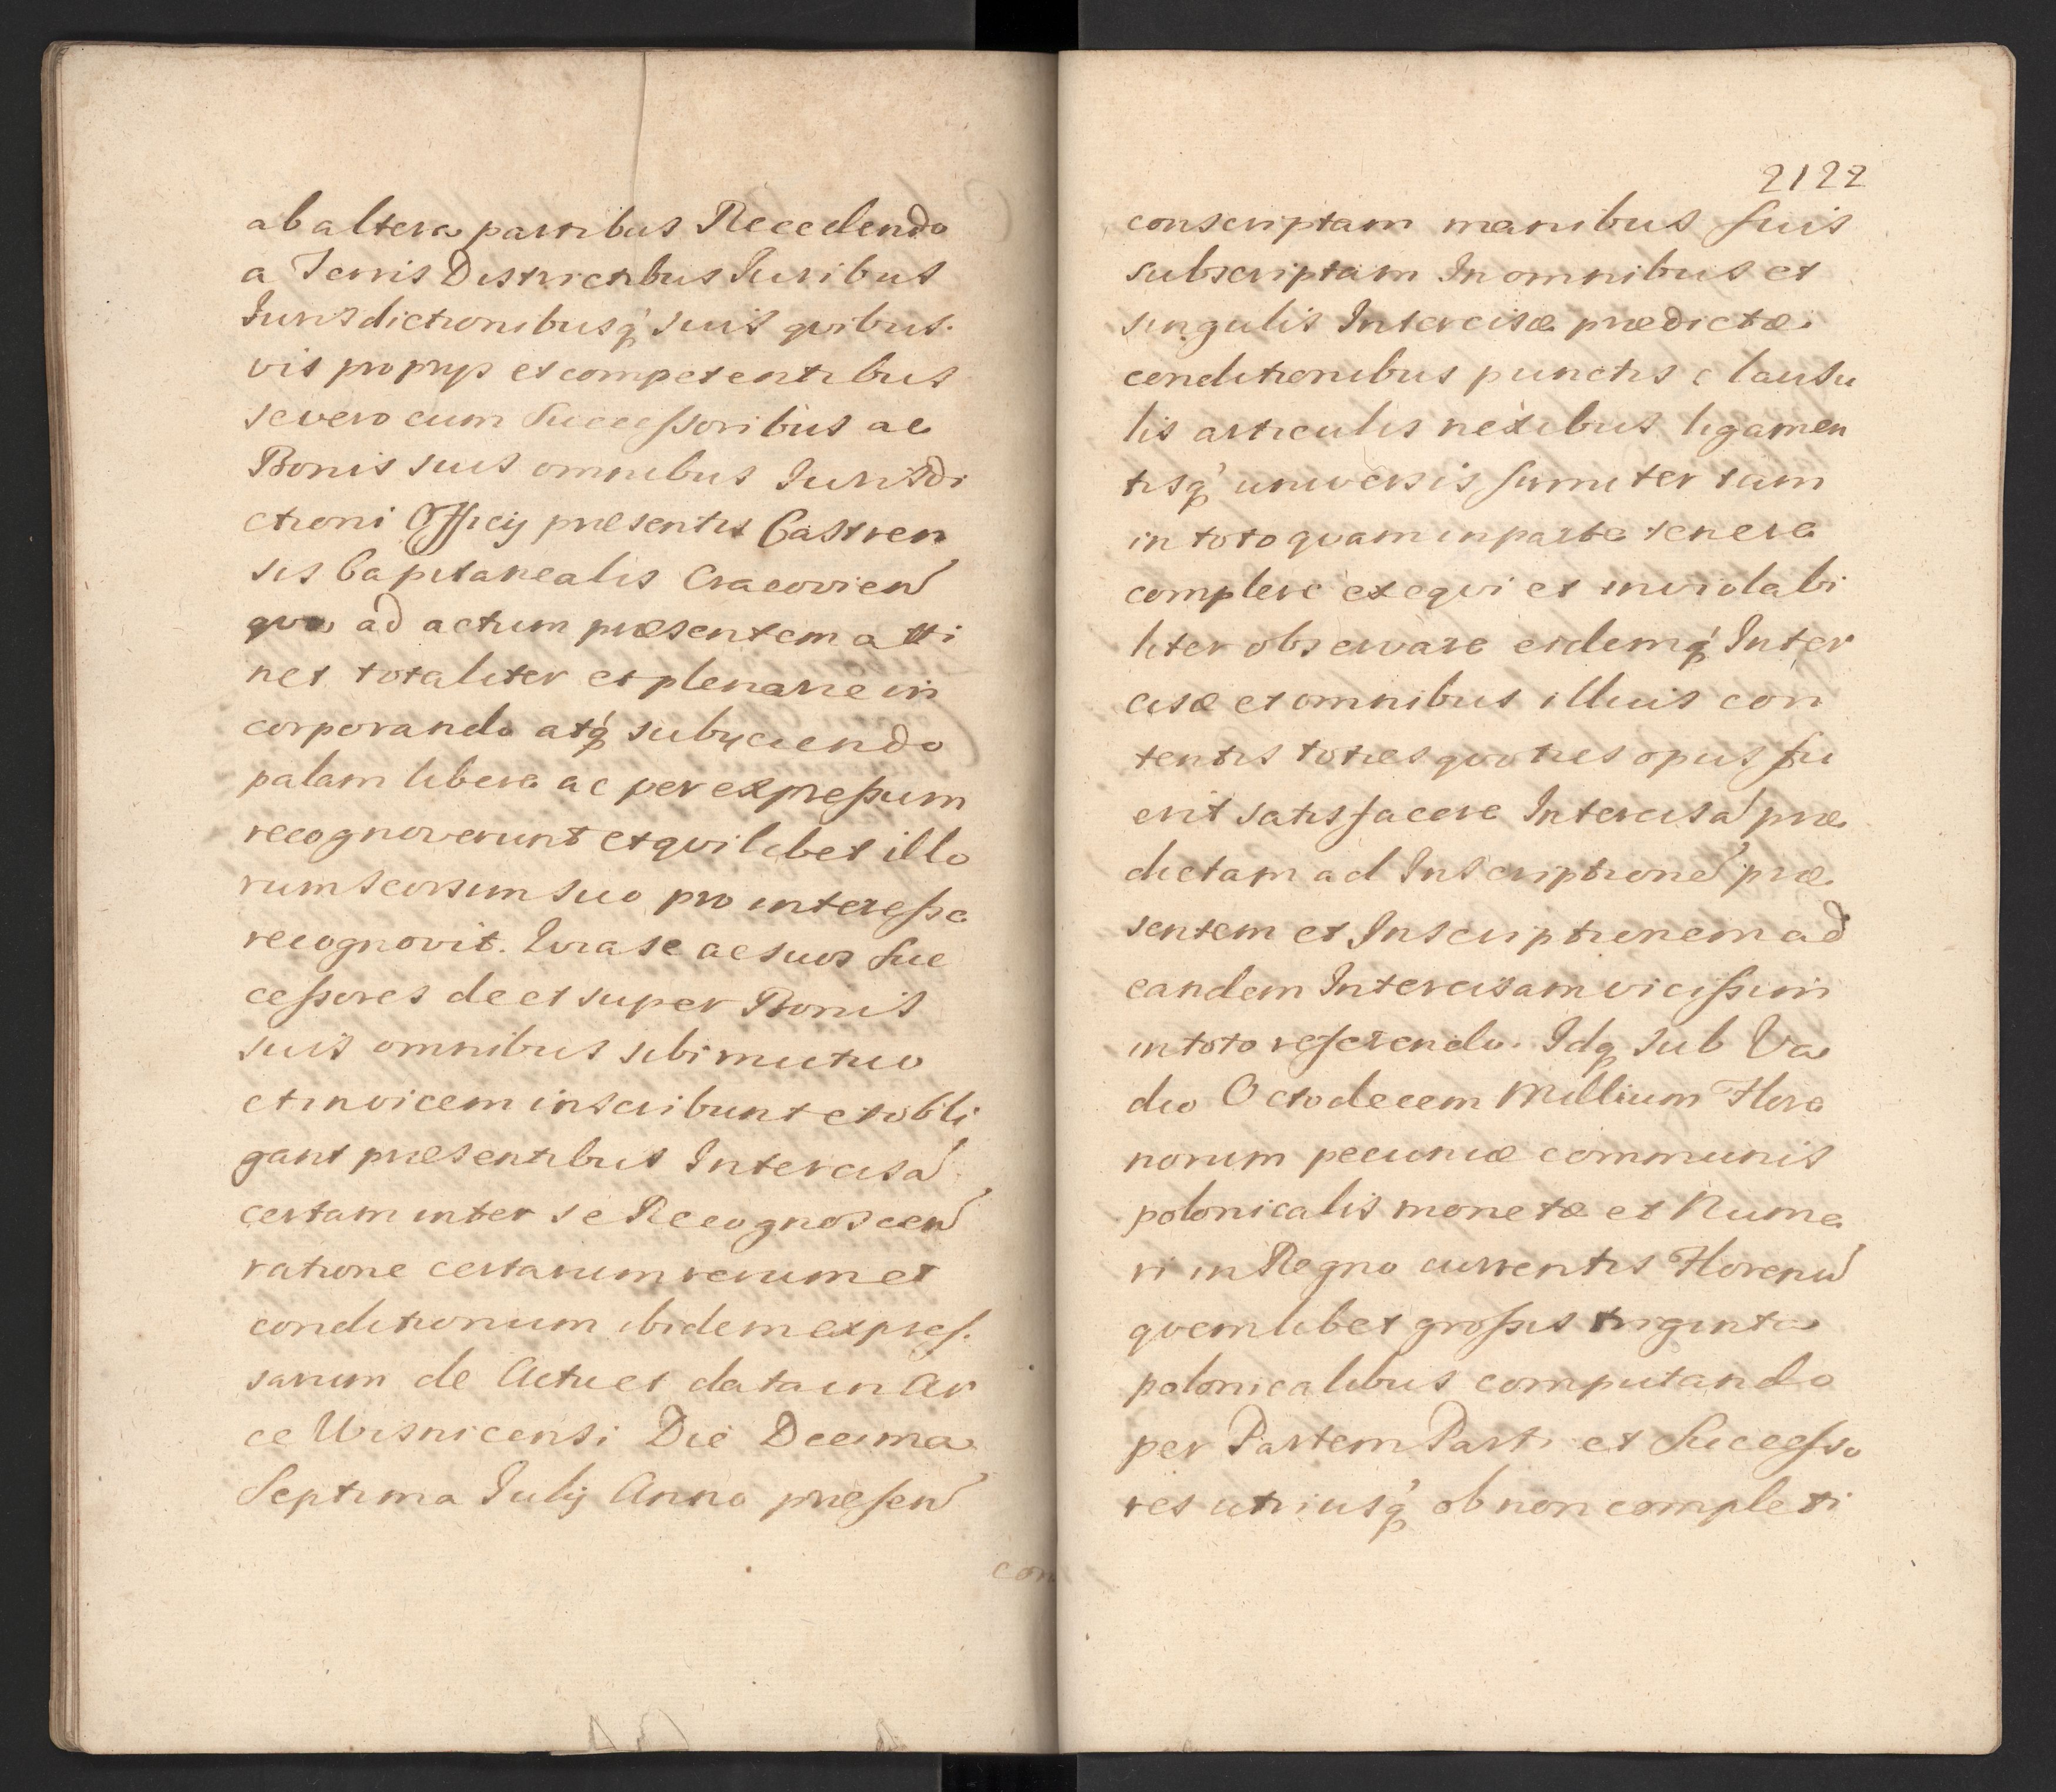 ab altera partibus Recedendo
a Terris Districtibus Iuribus
Iurisdictionibusq́ suis qvibus-
vis proprijs et competentibus
se vero cum Successoribus ac
Bonis suis omnibus Iurisdi
ctioni Officij præsentis Castren
sis Capitanealis Cracovien
qvo ad actum præsentem atti
net totaliter et plenarie in
corporando atq́ subijciendo
palam libere ac per expressum
recognoverunt et qvilibet illo
rum seorsim suo pro interesse
recognovit. Qvia se ac suos suc
cessores de et super Bonis
suis omnibus sibi mutuo
et invicem inscribunt et obli
gant præsentibus Intercisā
certam inter se Recognoscen
ratione certarum rerum et
conditionum ibidem expres-
sarum de Actu et data in Ar
ce Wisnicensi Die Decima
Septima Iulij Anno præsen
con
2122
conscriptam manibus suis
subscriptam In omnibus et
singulis Intercisæ prædictæ
conditionibus punctis clausu
lis articulis nexibus ligamen
tisq́ universis firmiter tam
in toto qvam in parte tenere
complere exeqvi et inviolabi
liter observare eidemq́ Inter
cisæ et omnibus illius con
tentis toties qvoties opus fu
erit satisfacere Intercisā præ
dictam ad Inscriptionē præ
sentem et Inscriptionem ad
eandem Intercisam vicissim
in toto referendo. Idq sub Va
dio Octodecem Millium Flore
norum pecuniæ communis
polonicalis monetæ et Nume
ri in Regno currentis Florenū
qvemlibet grossis triginta
polonicalibus computando
per Partem Parti et Successo
res utriusq́ ob non completi